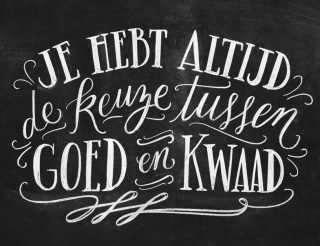 JE HEBT ALTIJD
de keuze tussen
GOED en KWAAD